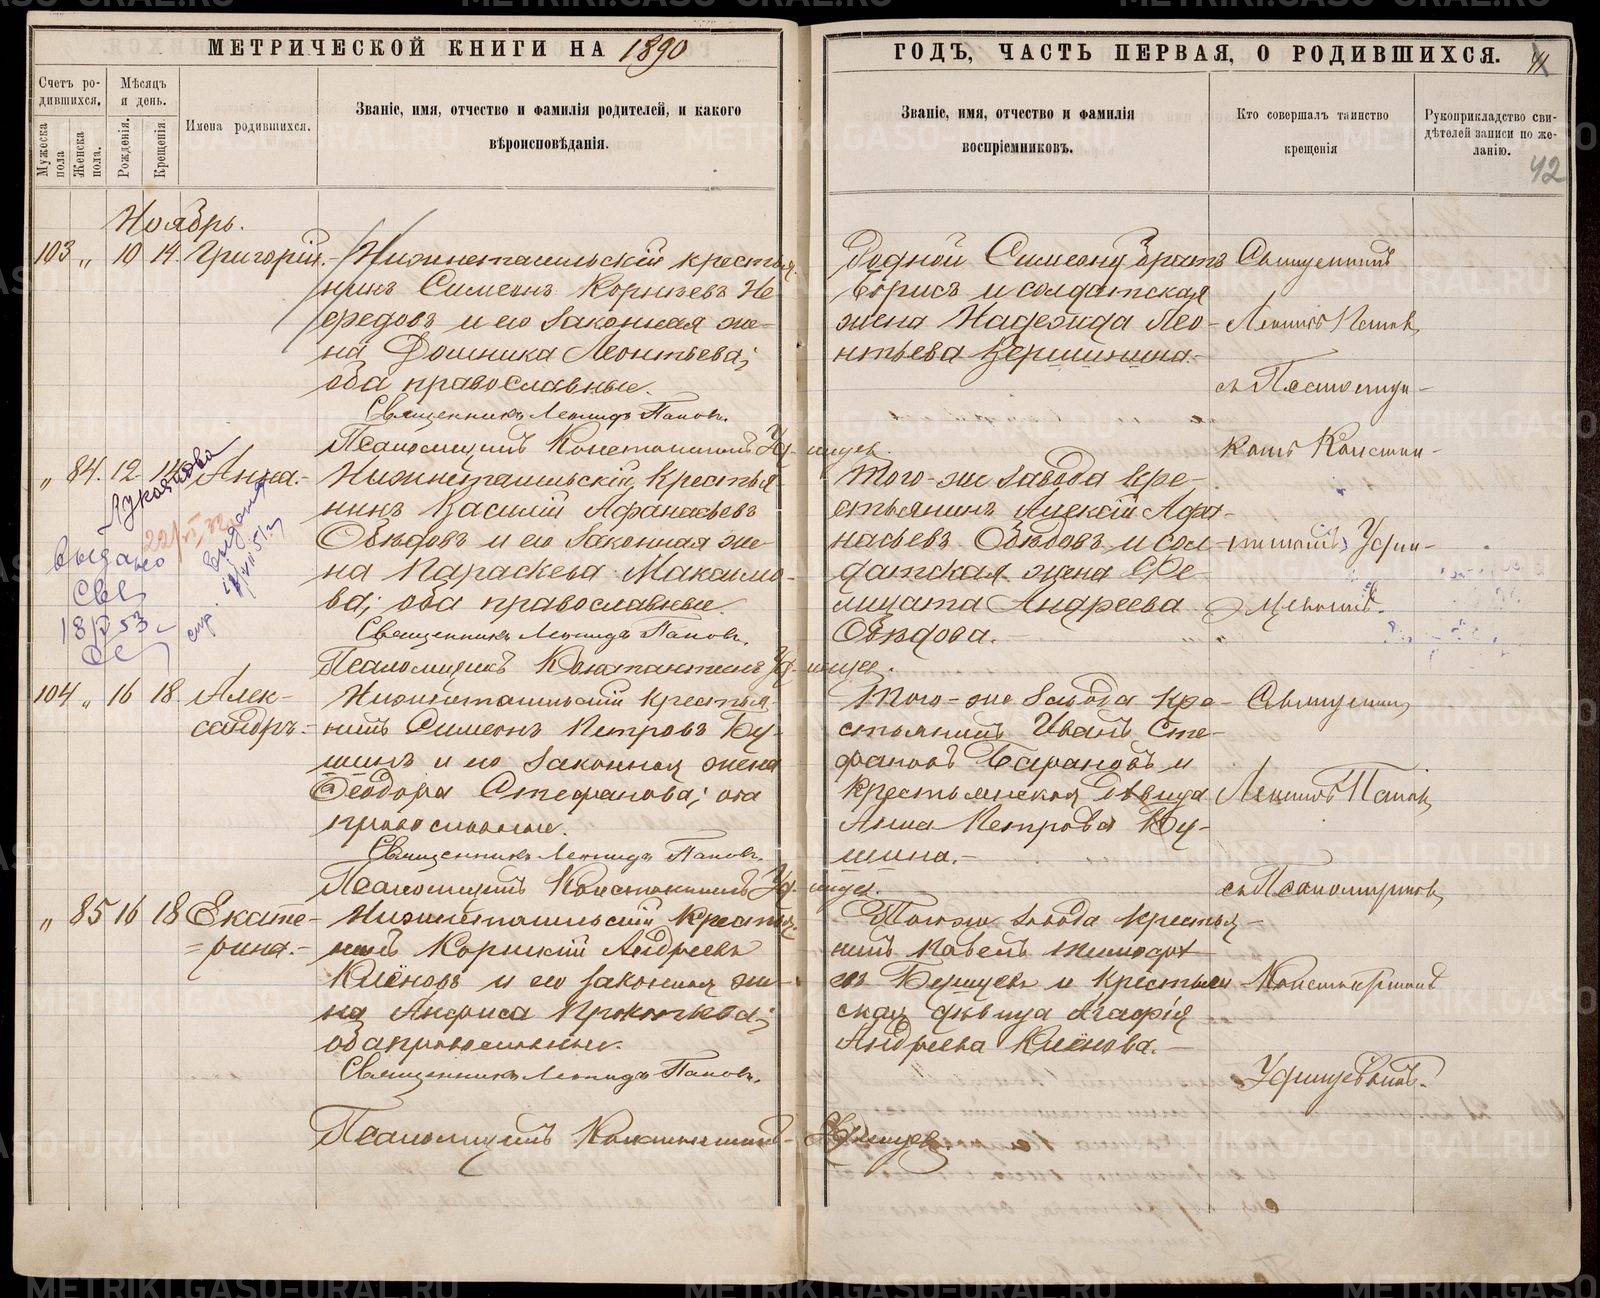 МЕТРИЧЕСКОЙ КНИГИ НА 1890
Счетъ ро-
дившихся.
Мужеска пола
Женска пола.
Мѣсяцъ
и день.
Рожденія.
Крещенія
Имена родившихся.
Званіе, имя, отчество и фамилія родителей, и какого
вѣроисповѣданія.
ГОДЪ, ЧАСТЬ ПЕРВАЯ, О РОДИВШИХСЯ.
41
Званіе, имя, отчество и фамилія
воспріемниковъ.
Кто совершалъ таинство
крещенія
Рукоприкладство сви-
дѣтелей записи по же-
ланію.
42
Ноябрь.
103 „ 10 14. Григорій.
Нижнетагильскій крестья-
нинъ Симеонъ Корнѣевъ Не-
ередовъ и его законная же-
на Домника Леонтьева;
оба православные.
Священникъ Леонидъ Поповъ.
Псаломщикъ Константинъ
Родной Симеону братъ
Борисъ и солдатская
жена Надежда Лео-
нтьева Вершинина.
Священникъ
Леонидъ Поповъ
съ Псаломщи-
комъ Констан-
„ 84. 12 14 Анна.
Нижнетагильскій крестья-
нинъ Василій Афанасьевъ
Обѣдовъ и его законная же-
на Параскева Максимо-
ва; оба православные.
Священникъ Леонидъ Поповъ.
Псаломщикъ Константинъ
Того-же завода кре-
стьянинъ Алексій Афа-
насьевъ Обѣдовъ и сол-
датская жена
Андреева
Обѣдова.
выдано
104 „ 16 18. Алек-
сандръ.
Нижнетагильскій крестья-
нинъ Симеонъ Петровъ Бу-
шинъ и его законная жена
Ѳеодора Стефанова; оба
православные.
Священникъ Леонидъ Поповъ.
Псаломщикъ Константинъ
Того-же завода кре-
стьянинъ Иванъ Сте-
фановъ Барановъ и
крестьянская дѣвица
Анна Петрова Бу-
шина.
Священникъ
Леонидъ Поповъ
съ Псаломщикомъ
„ 85 16 18 Екате-
=рина.
Нижнетагильскій крестья-
нинъ Корнилій Андреевъ
Клёновъ и его законная же-
на Анфиса Прокопьева;
оба православные.
Священникъ Леонидъ Поповъ.
Псаломщикъ Константинъ
Того же завода крестья-
нинъ Павелъ
и крестьян-
ская дѣвица Агафія
Андреева Клёнова.
Константиномъ